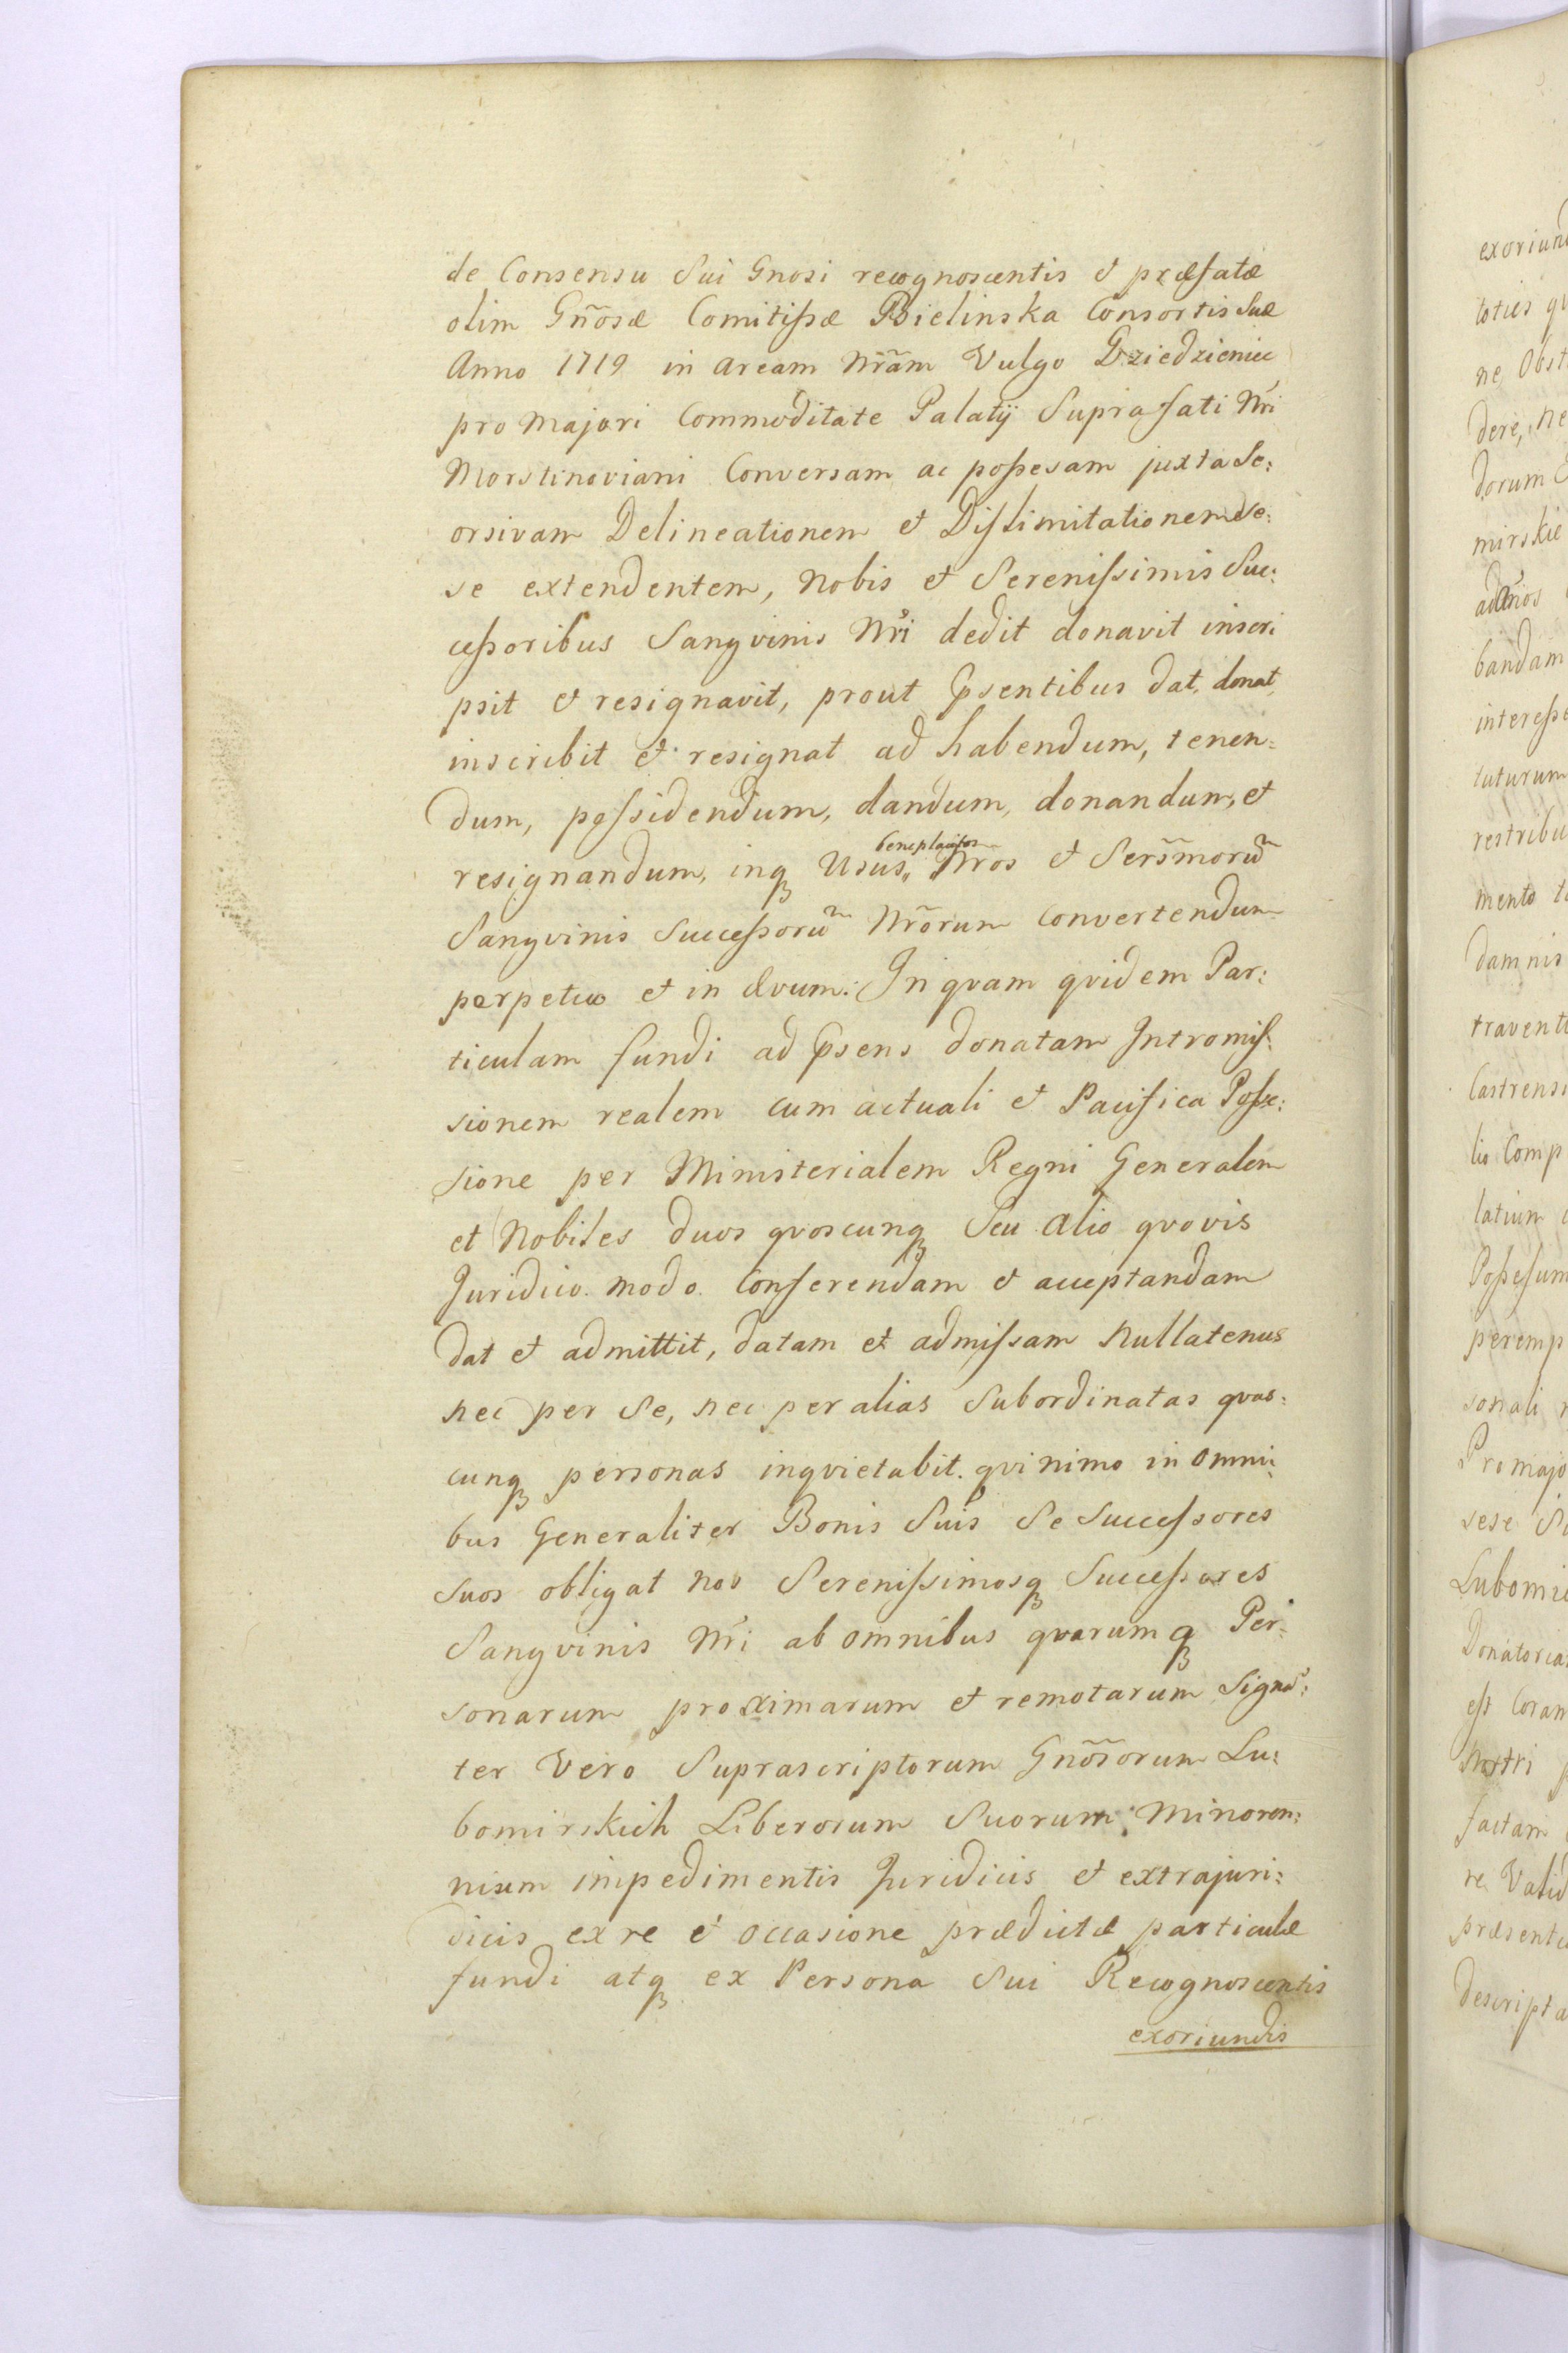 de Consensu Sui Gnosi recognoscentis et præfatæ
olim Gñosæ Comitißæ Bielinska Consortis Suæ
Anno 1719 in aream Nrãm Vulgo Dziedzieniec
pro majori Commoditate Palatij Suprafati Nri
Morstinoviani Conversam ac poßesam juxta Se:
orsivam Delineationem et Dislimitationem de:
se extendentem, Nobis et Serenissimis Suc:
ceßoribus Sangvinis Nri dedit donavit inscri
psit et resignavit, prout psentibus dat, donat,
inscribit et resignat ad habendum, tenen=
dum, possidendum, dandum, donandum, et
resignandum, inq Usus, beneplacitos Nros et Sersm̃orũ
Sangvinis Succeßorũ Nrõrum convertendum
perpetuo et in ævum. In qvam qvidem Par:
ticulam fundi ad psens donatam Intromis:
sionem realem cum actuali et Pacifica Posse:
sione per Ministerialem Regni Generalem
et Nobiles duos qvoscunq Seu alio qvovis
Juridico modo Conferendam et acceptandam
dat et admittit, datam et admissam Nullatenus
nec per Se, nec per alias Subordinatas qvas:
cunq personas inqvietabit. qvinimo in Omni:
bus Generaliter Bonis Suis Se Successores
Suos obligat nos Serenissimosq Successores
Sangvinis Nri ab omnibus qvarumq Per:
sonarum proximarum et remotarum Signã:
ter Vero Suprascriptorum Gnõsorum Lu:
bomirskich Liberorum Suorum Minoren:
nium impedimentis Juridicis et extrajuri:
dicis ex re et occasione prædictæ particulæ
fundi atq ex Persona Sui Recognoscentis
exoriundis